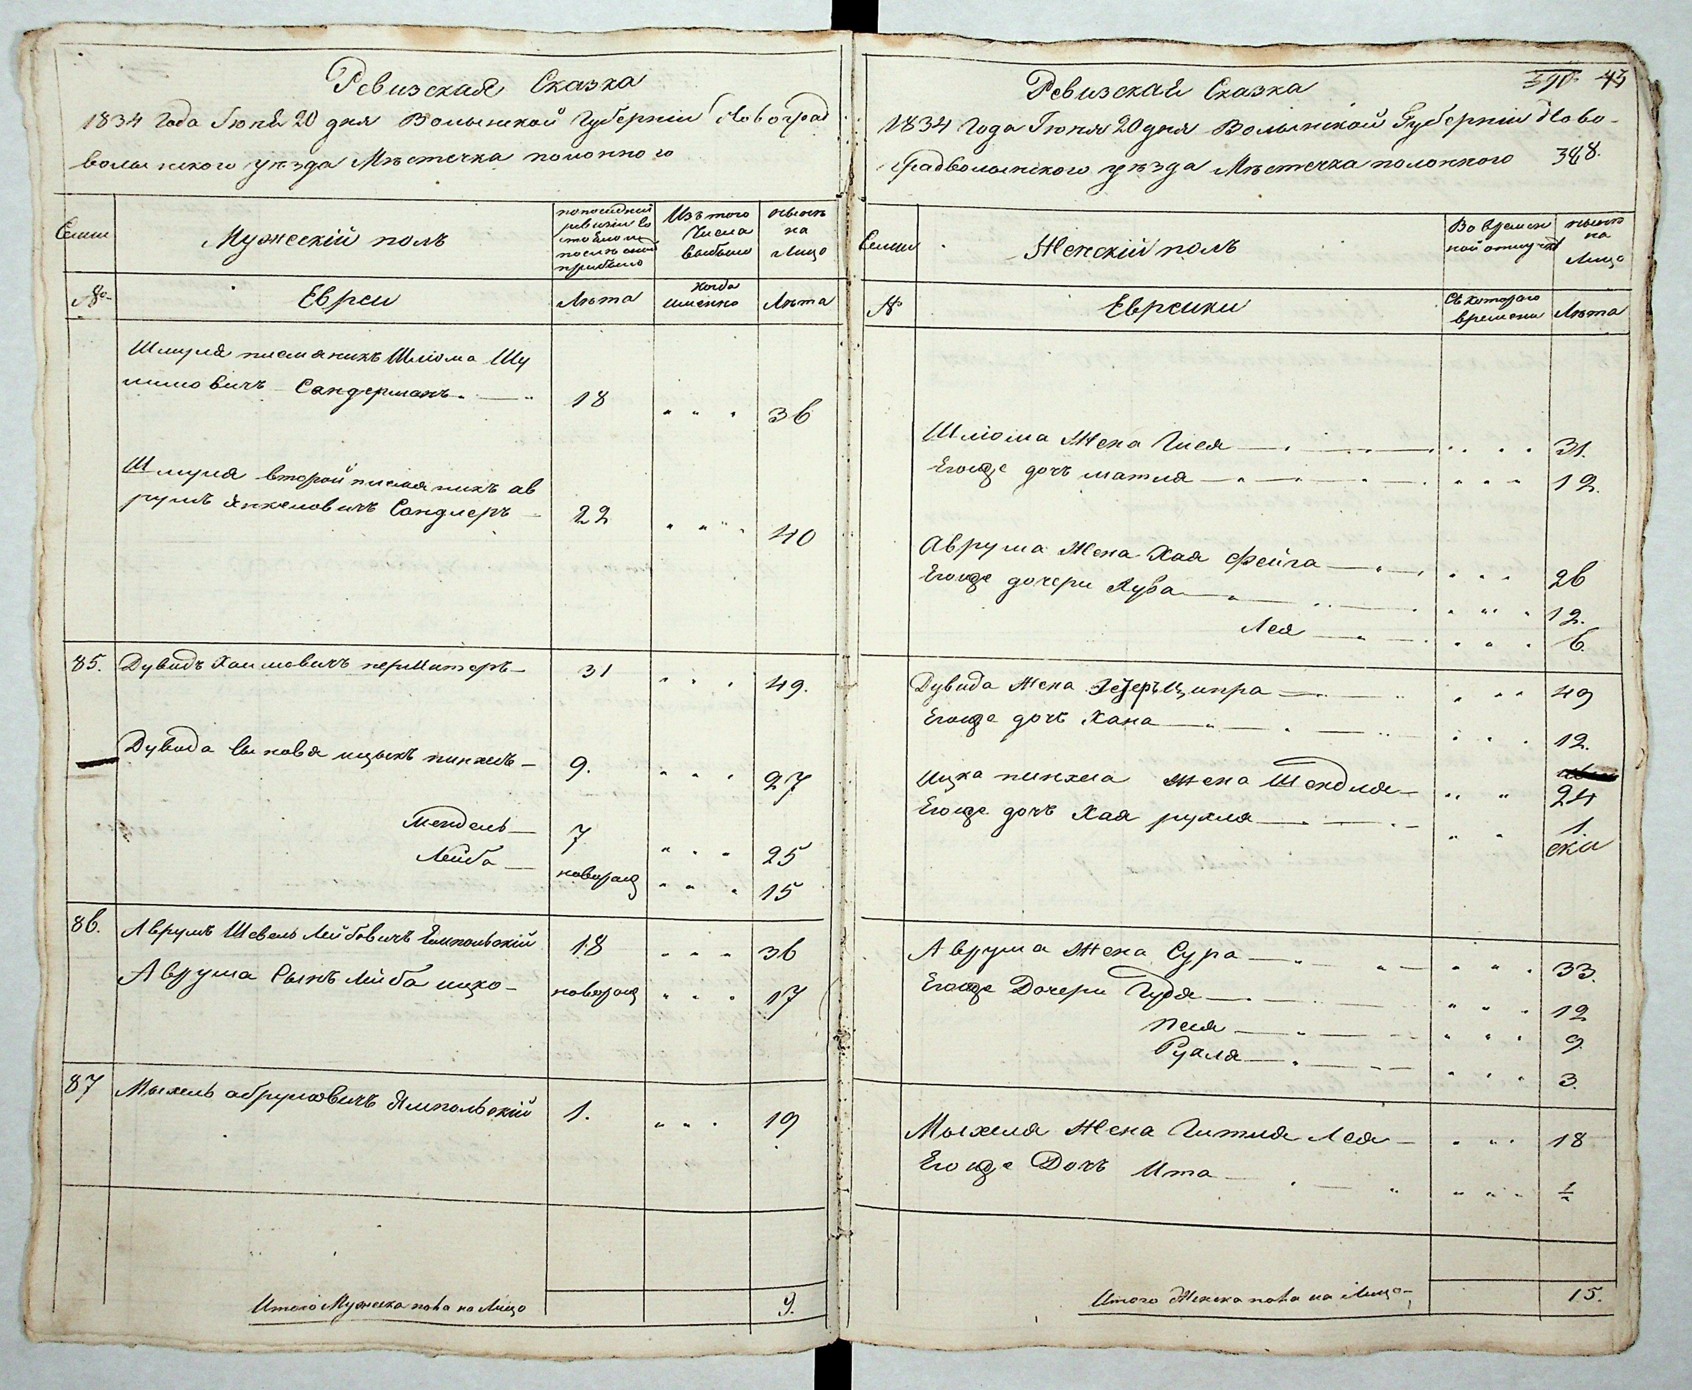 Ревизская Сказка
1834 Года Июня 20 дня Волынской Губерніи Новоград
волынского уѣзда Мѣстечка полонного
Семьи
Мужескій полъ
по последней ревизіи состояло и после оной прибыло
Изъ того Числа выбыло
нынѣ на Лицо
№
Евреи
Лѣта
когда именно
Лѣта
Шмуля племяникъ Шлиома Шу
лимовичъ Сандерманъ 18 " " " 36
Шмуля второй племяникъ ав
румъ Янкелювичъ Сандлеръ 22 " " " 40
85. Дувидъ Хаимовичъ 31 " " " 49.
Дувида Сыновя ицыкъ пинхесъ 9. " " " 27
Мендель 7 " " " 25
Лейба новорожд " " " 15
86. Аврумъ Шевель Лейбовичъ Емпольскій 18 " " " 36
Аврума Сынъ Лейба ицко новорожд " " " 17
87 Мыхель абрумовичъ Ямпольскій 1. " " " 19
Итого Мужеска пола на Лицо 9.
Ревизская Сказка 43
1834 Года Июня 20 дня Волынской Губерніи Ново-
градволынского уѣзда Мѣстечка полонного 388.
Семьи
Женскій полъ
Во времен
ной отлучке
нынѣ на Лицо
№
Еврейки
Съ которого времени
Лѣта
Шлиома Жена Гися " " " 31.
Егожде дочъ матля " " " 12.
Аврума Жена Хая Фейга " " " 26
Егожде дочери Хува " " " 12.
Лея " " " 6.
Дувида Жена Ципра " " " 49
Егожде дочъ Хана " " " 12.
Ицка пинхеса Жена Шендля " " 24
Егожде дочъ Хая рухля " " 1
Аврума Жена Сура " " " 33.
Егожде Дочери Гудя " " " 12
Песя " " " 9.
Рухля " " " 3.
Мыхеля Жена Гитля Лея " " " 18
Егожде Дочъ Ита " " " ½
Итого Женска пола на Лицо 15.